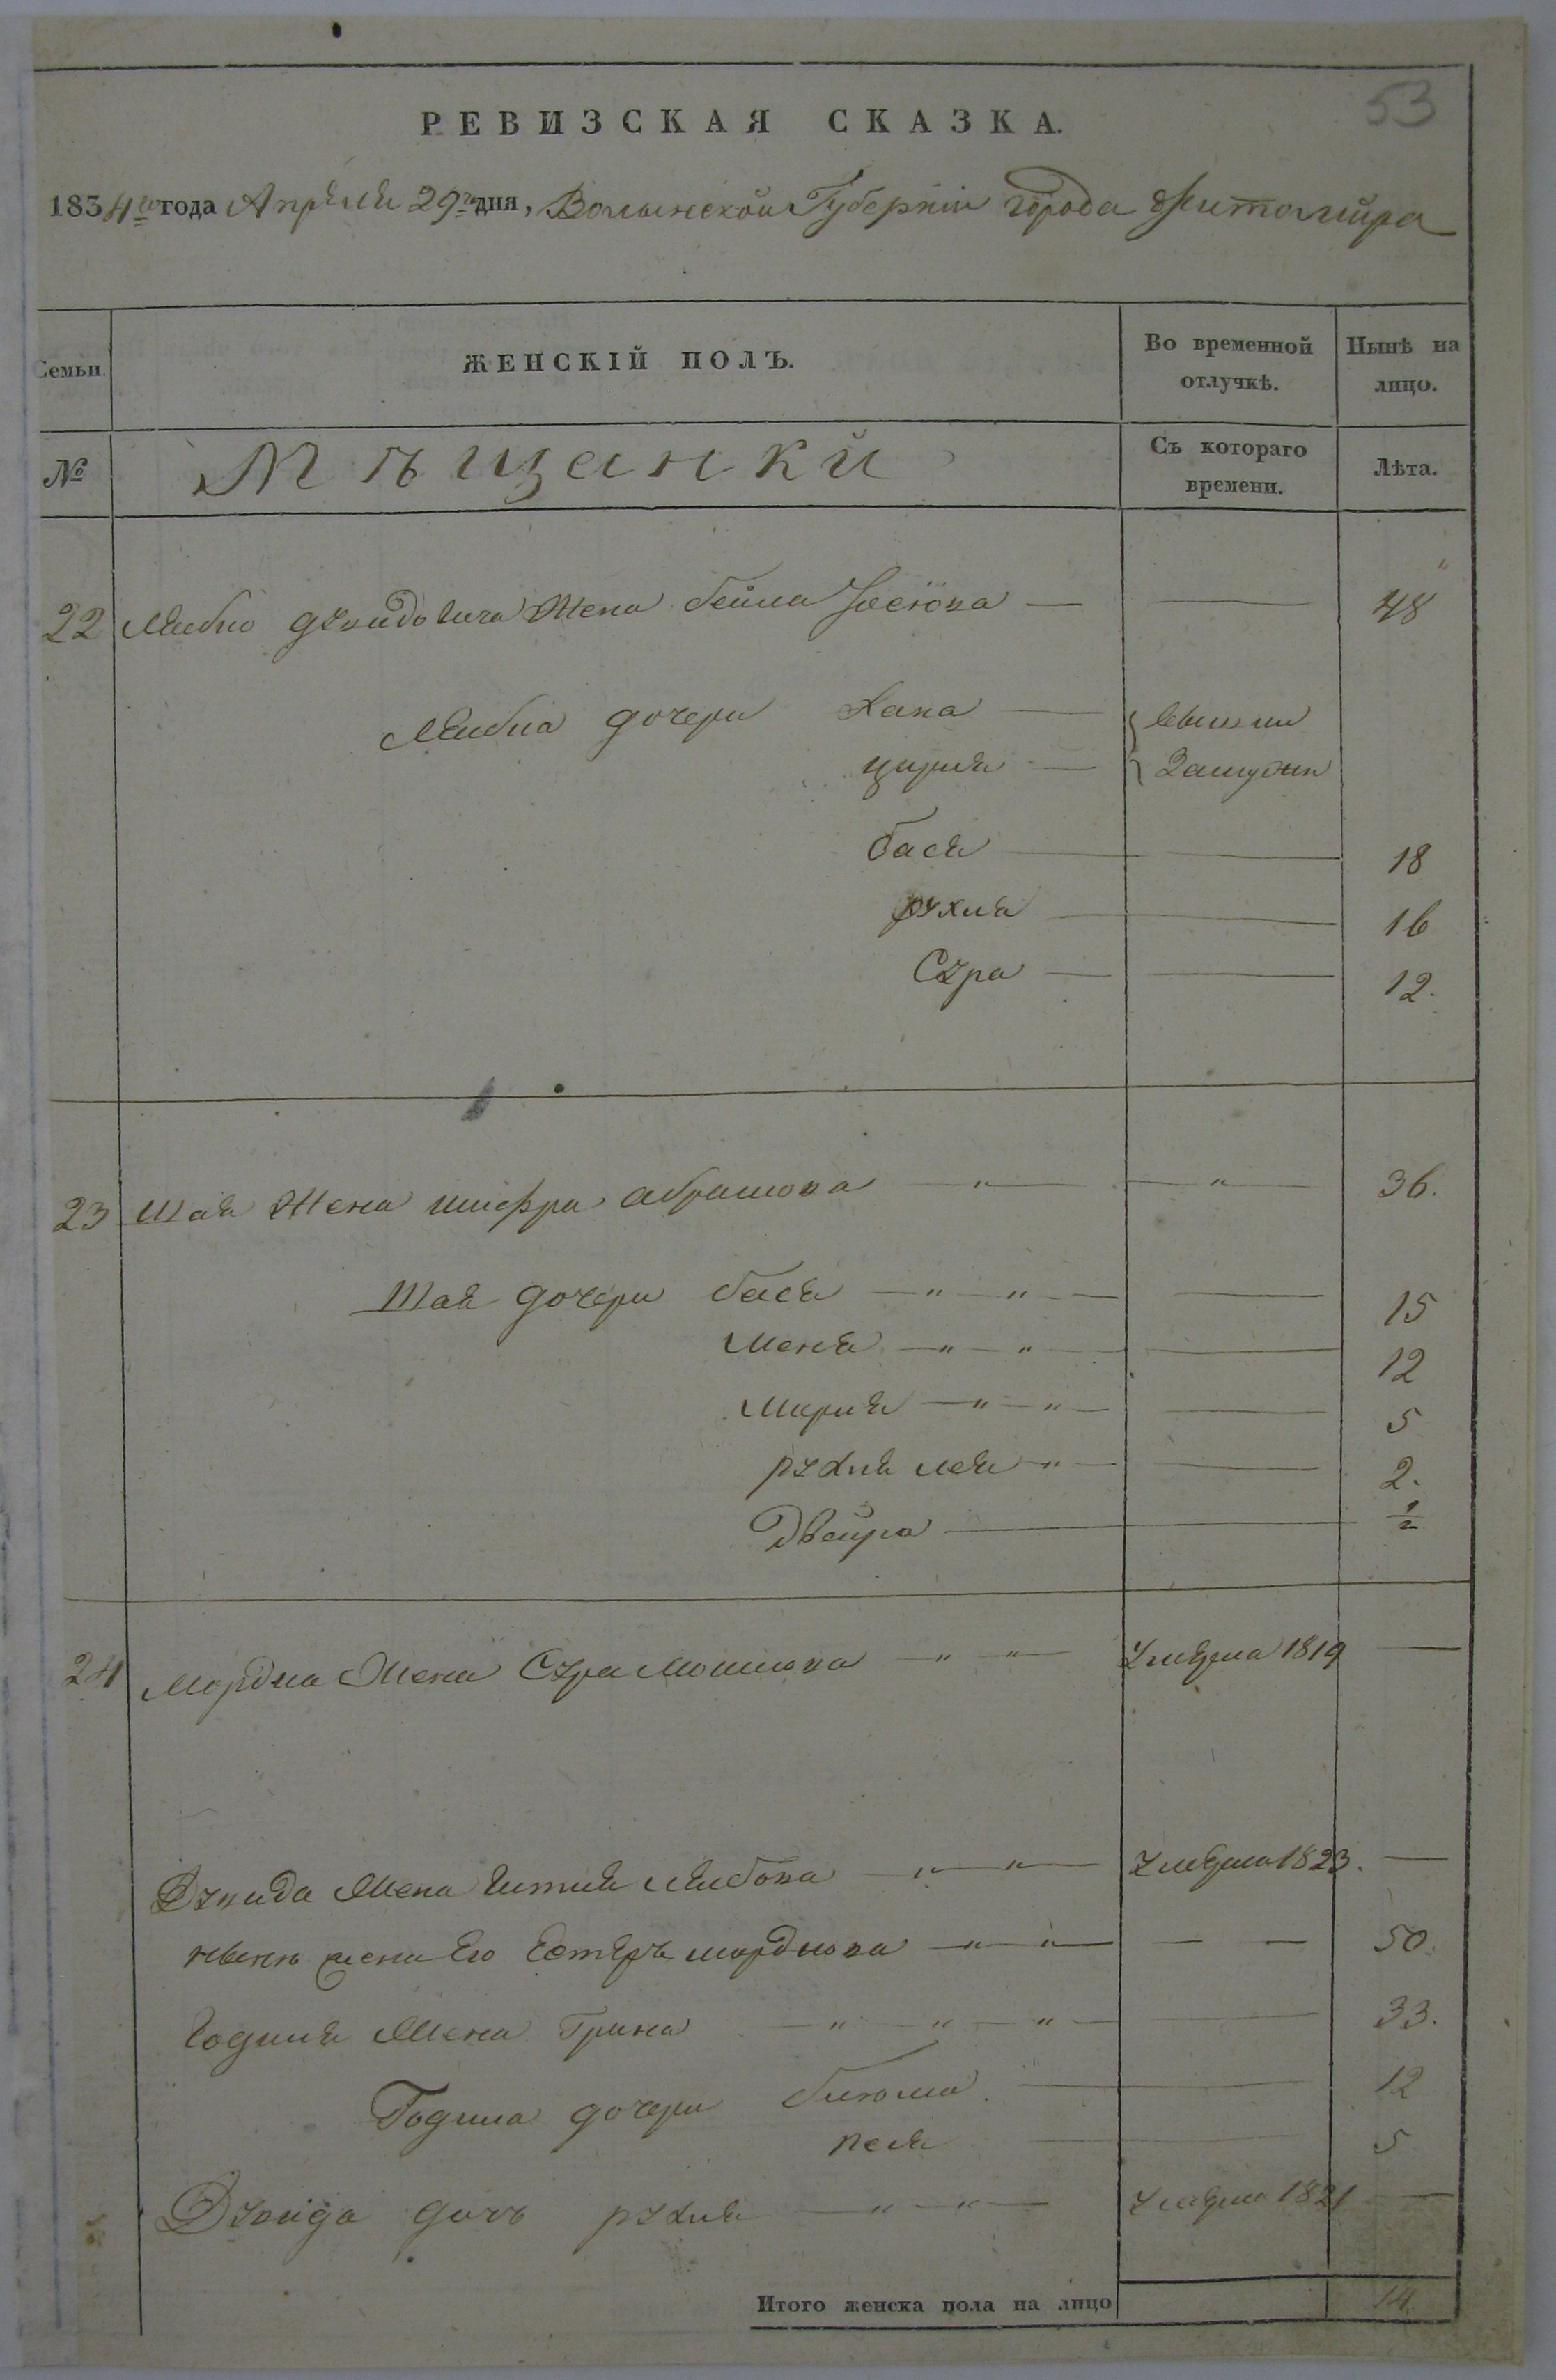 53
РЕВИЗСКАЯ СКАЗКА.
1834го года Апреля 29го дня, Волынской Губернии города Житомира
Семьи. ЖЕНСКІЙ ПОЛЪ. Во временной отлучкѣ. Нынѣ на лицо.
№ Мѣщанки Съ котораго времени. Лѣта.
22 Лейбы Жена бейла 48
Лейбы дочери Хана — вышли
цирля — Замужъ
бася — 18
рухля — 16
Сура — 12.
23 Шая Жена шифра абрамова — " — — " — 36.
Шая дочери бася — " — " — 15
Меня — " — " — 12
Мирля — " — " — 5
рухля лея — " — 2.
Двейра — 1/2
24 Мордка Жена Сура Мошкова — " — " — Умерла 1819 —
Жена лейбова — " — " — Умерла 1823. —
жена Его Естеръ мордкова — " — " — 50.
Жена — " — " — " — 33.
дочери блюма — 12
песя — 5
дочь рухля — " — " — Умерла 1821 —
Итого женска пола на лицо 14.